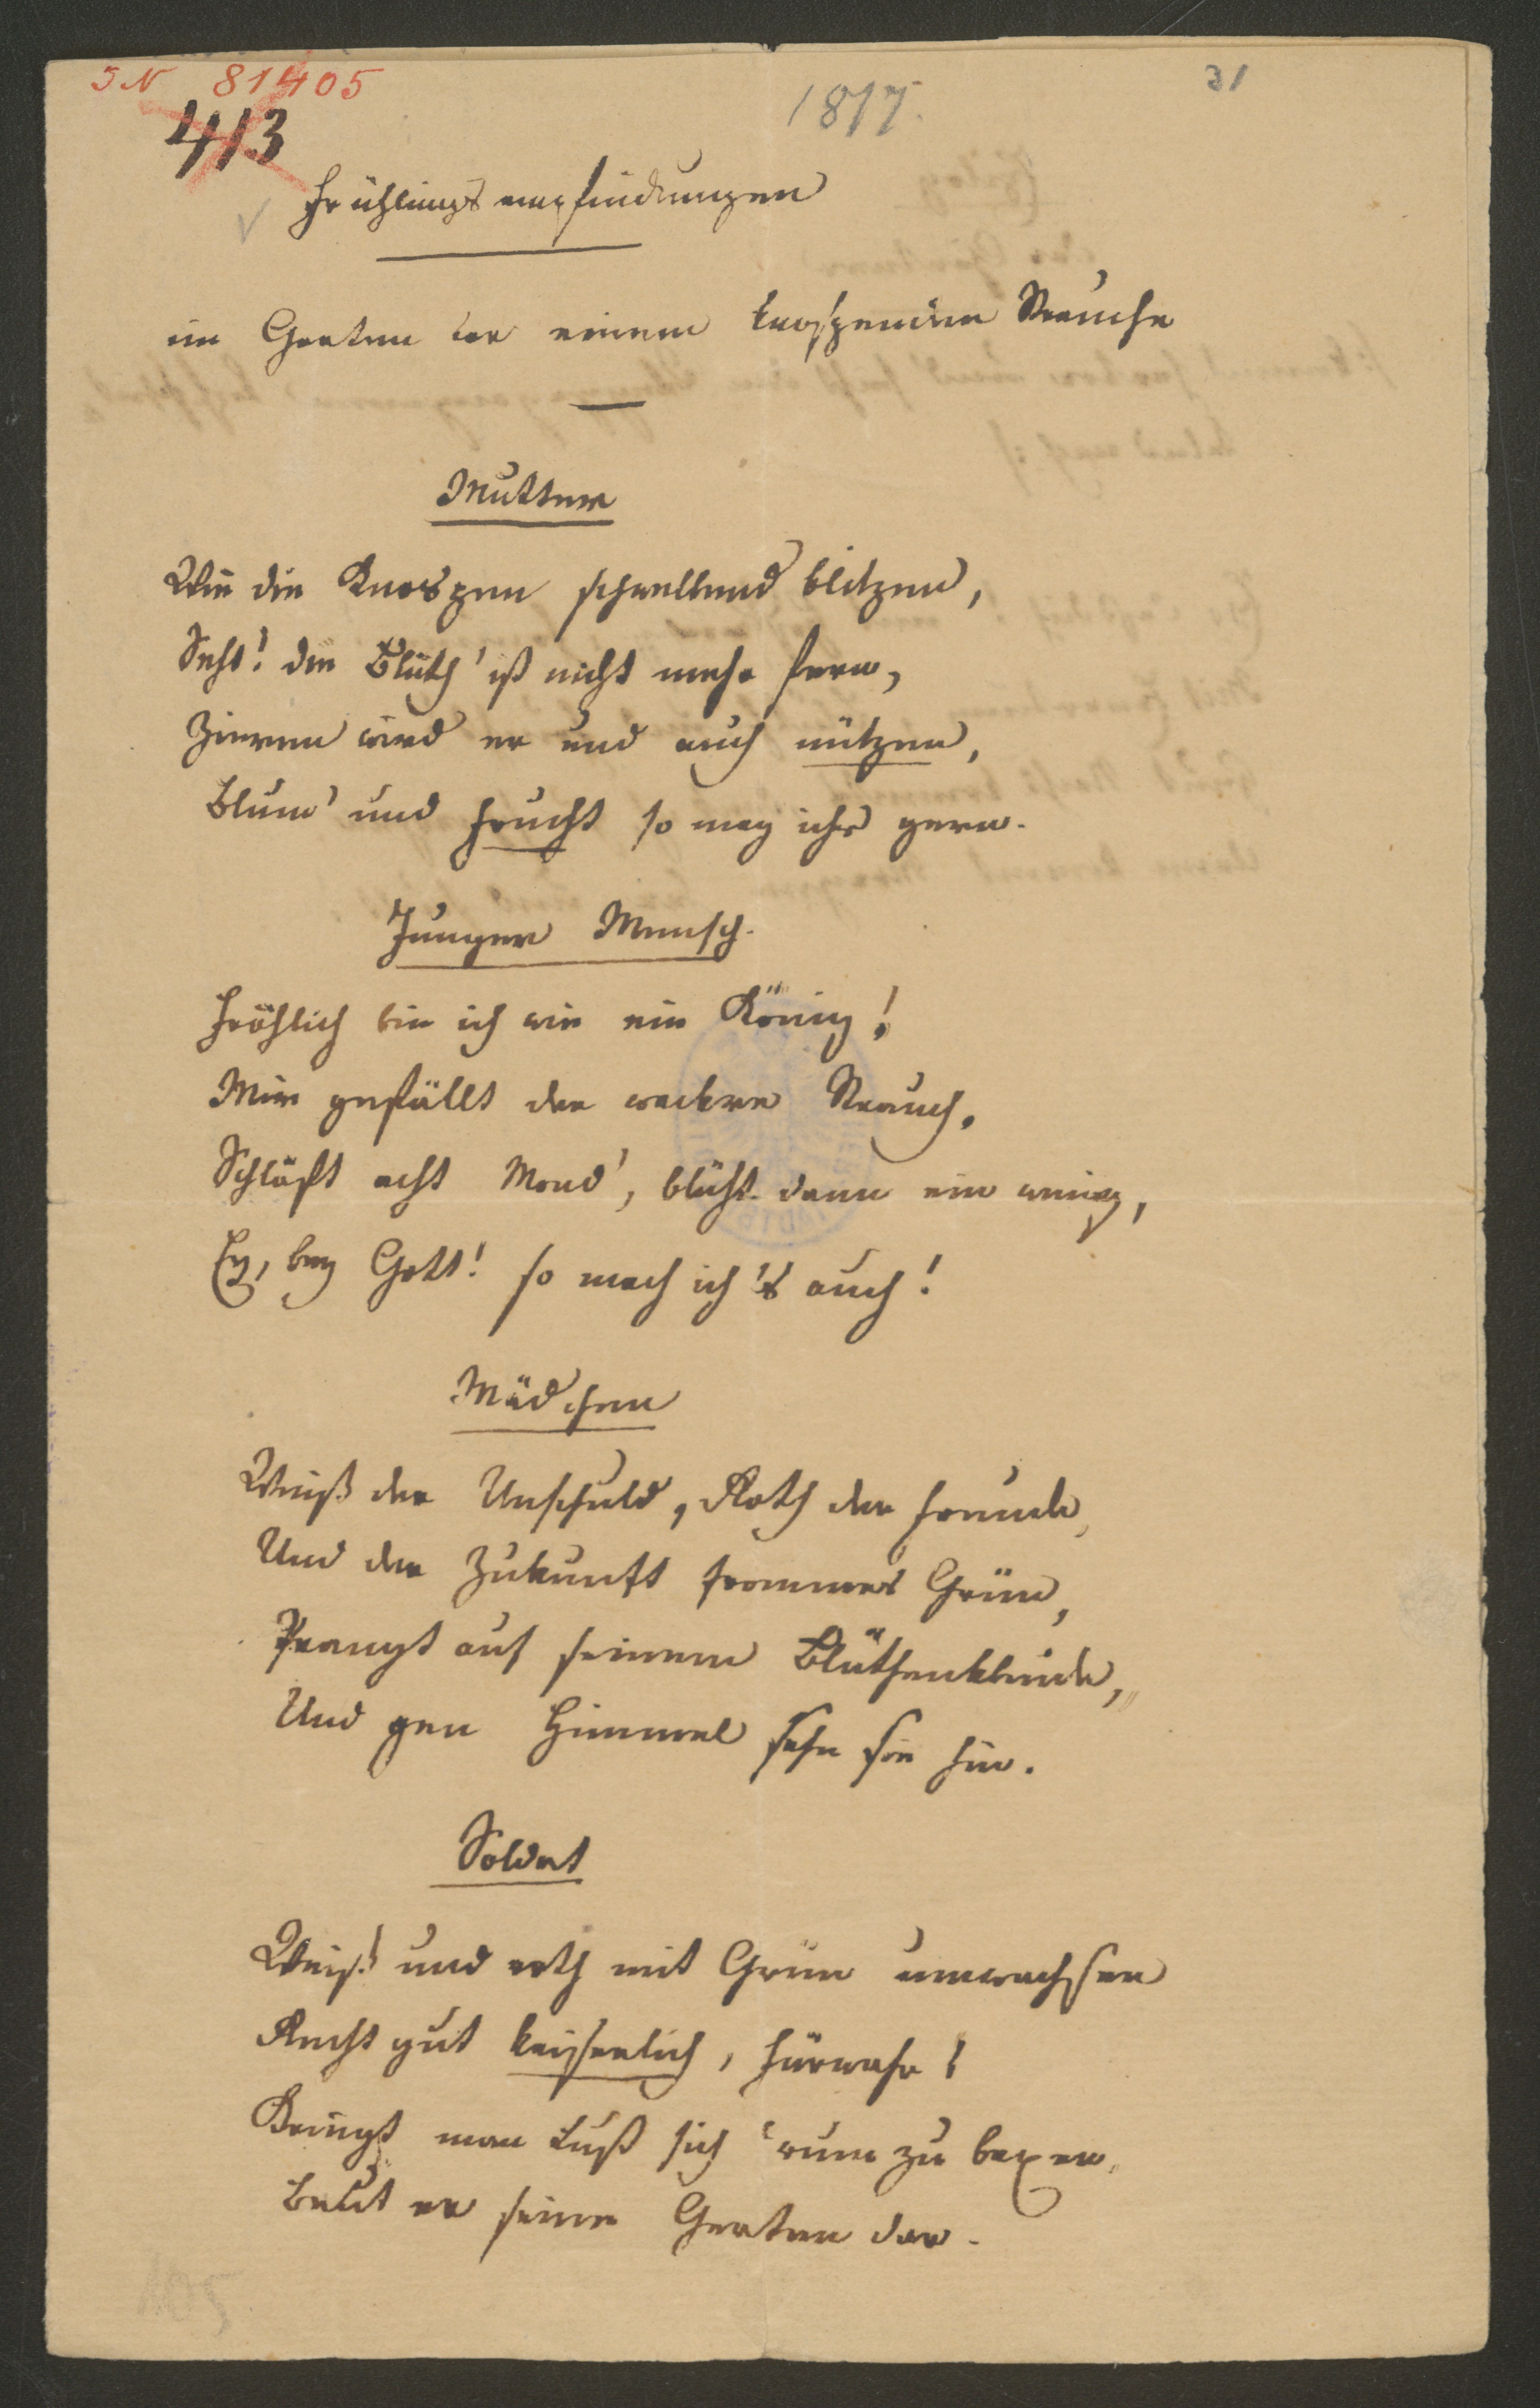 JN 81405
413
1817.
31
Frühlingsempfindungen
im Garten vor einem knospenden Strauche
Mutter
Wie die Knospen schwellend blitzen,
Seht! die Blüth' ist nicht mehr fern,
Zieren wird er und auch nützen,
Blum' und Frucht so mag ichs gern.
Junger Mensch.
Fröhlich bin ich wie ein König!
Mir gefällt der wackre Strauch,
Schläft acht Mond', blüht dann ein wenig,
Ey, bey Gott! so mach ich's auch!
Mädchen
Weiß der Unschuld, Roth der Freude,
Und der Zukunft frommes Grün,
Prangt auf seinem Blüthenkleide,
Und gen Himmel sehn sie hin.
Soldat
Weiß und roth mit Grün umwachsen
Recht gut kaiserlich, fürwahr!
Bringt man Lust sich 'rum zu baxen,
Beut er seine Gerten dar.
105